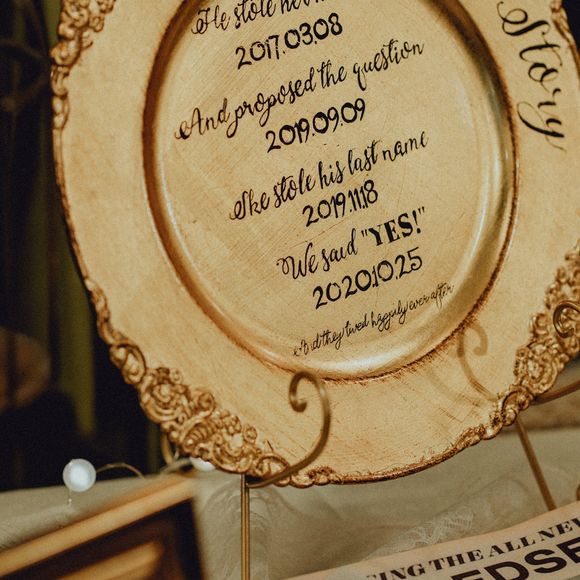 He stole
2017.03.08
And proposed the question
2019.09.09
She stole his last name
2019.11.18
We said "YES!"
2020.10.25
And they lived happily ever after
Story
THE ALL